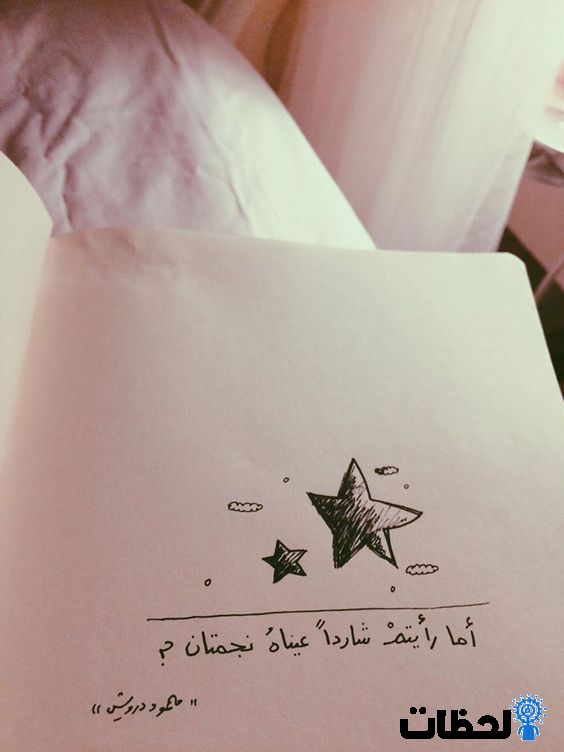 أما رأيتمْ شارداً عيناهُ نجمتان ؟
"محمود درويش"
لحظات